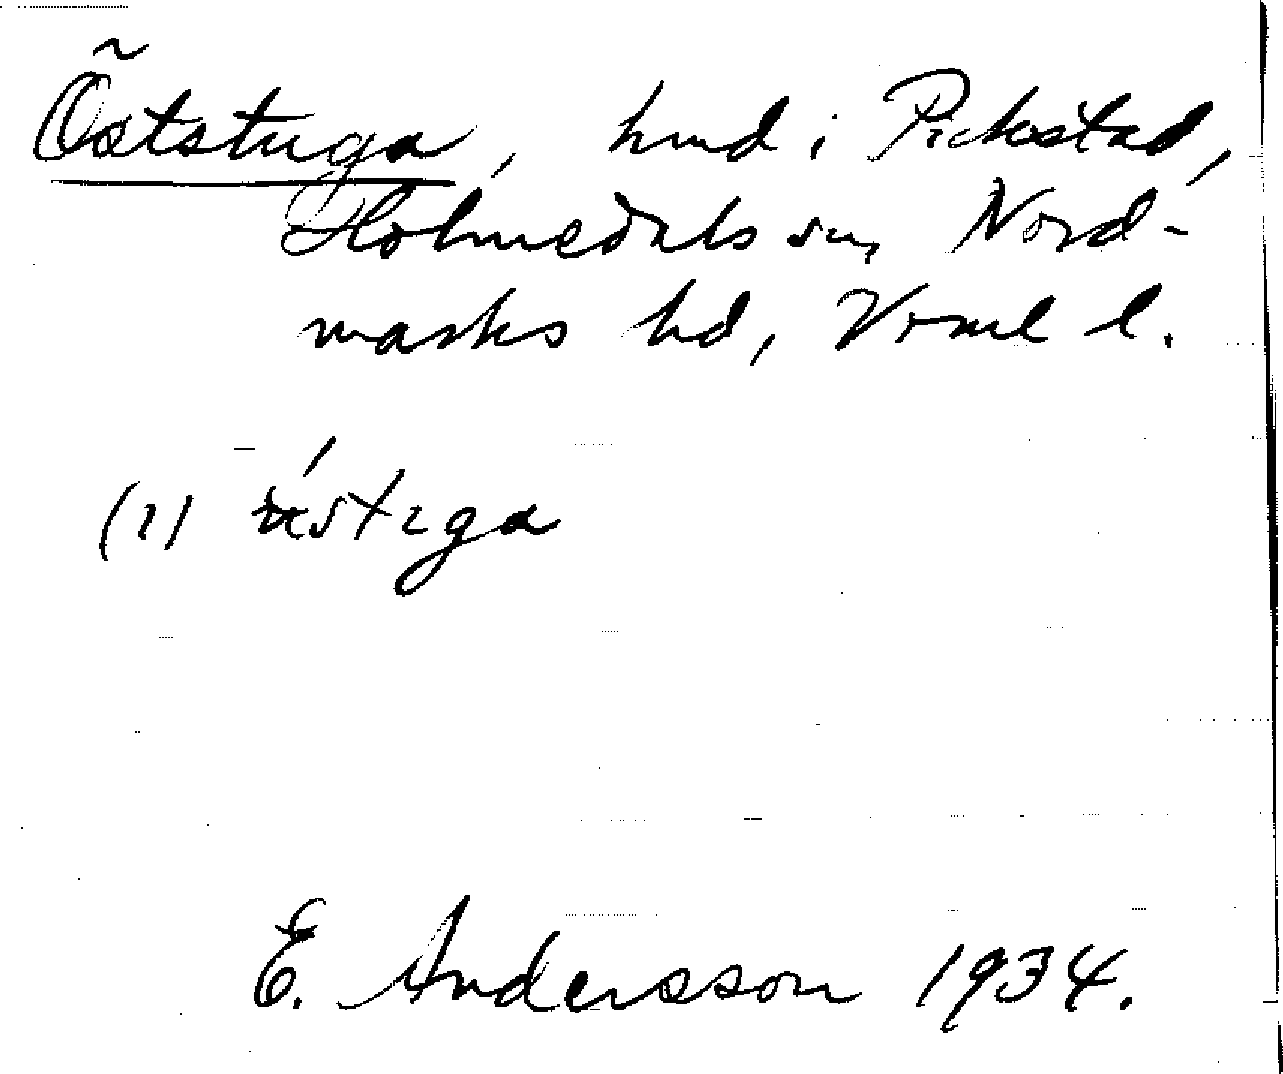 Öststuga, hmd i Rickstad,
Holmedals sn, Nord-
marks hd, Vrml l.
(1)
E. Andersson 1934.